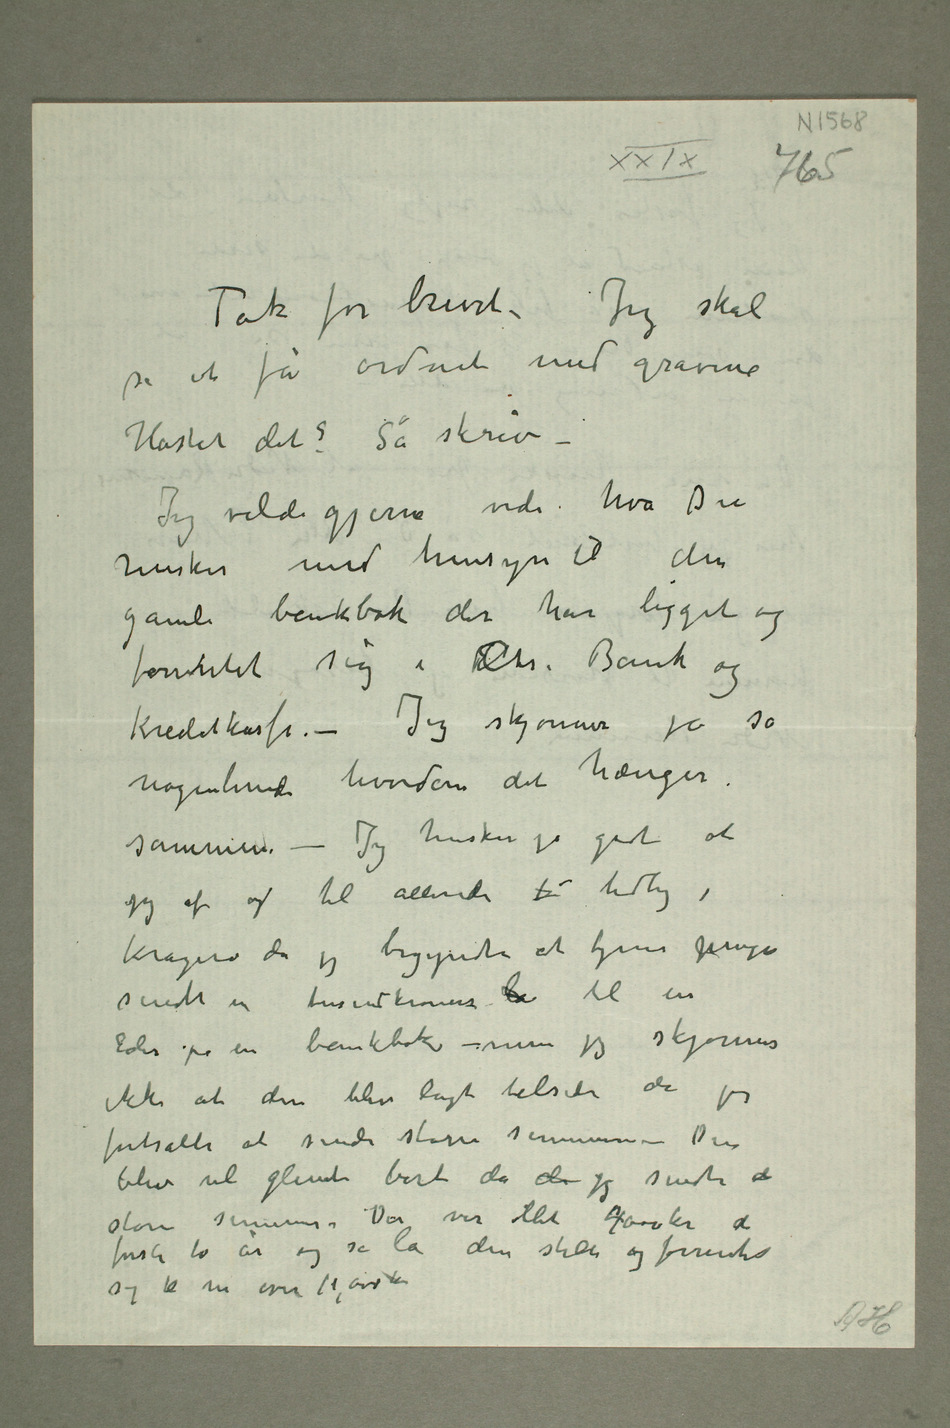 N1568
XXIX 765
Tak for brevet – Jeg skal
se at få ordnet med gravene
Haster det? Så skriv –
Jeg vilde gjerne vide hva Du
husker med hensyn til den
gamle bankbok der har ligget og
forrentet sig i Chr. Bank og
Kreditkasse. – Jeg skjønner jo så
nogenlunde hvordan det hænger
sammen. – Jeg husker jo godt at
jeg af og til allerede tidlig i
Kragerø da jeg begyndte at tjene penge
sendte en tusindkroner til en
Eder på en bankbok – men jeg skjønner
ikke at den blev lagt tilside da jeg
fortsatte at sende større summer – Den
blev vel glemt bort da jeg sendte de
større summer. Der var 4000 kr de
første to år og så lå den stille og forrentet
sig til nu over 11,000 kr